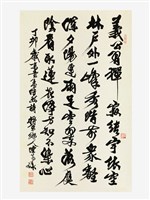 義公習禪寂結宇依空
林戶外一峰秀階前衆壑
深夕陽連雨足空翠落庭
陰看取蓮花淨知不染心
丁卯歲